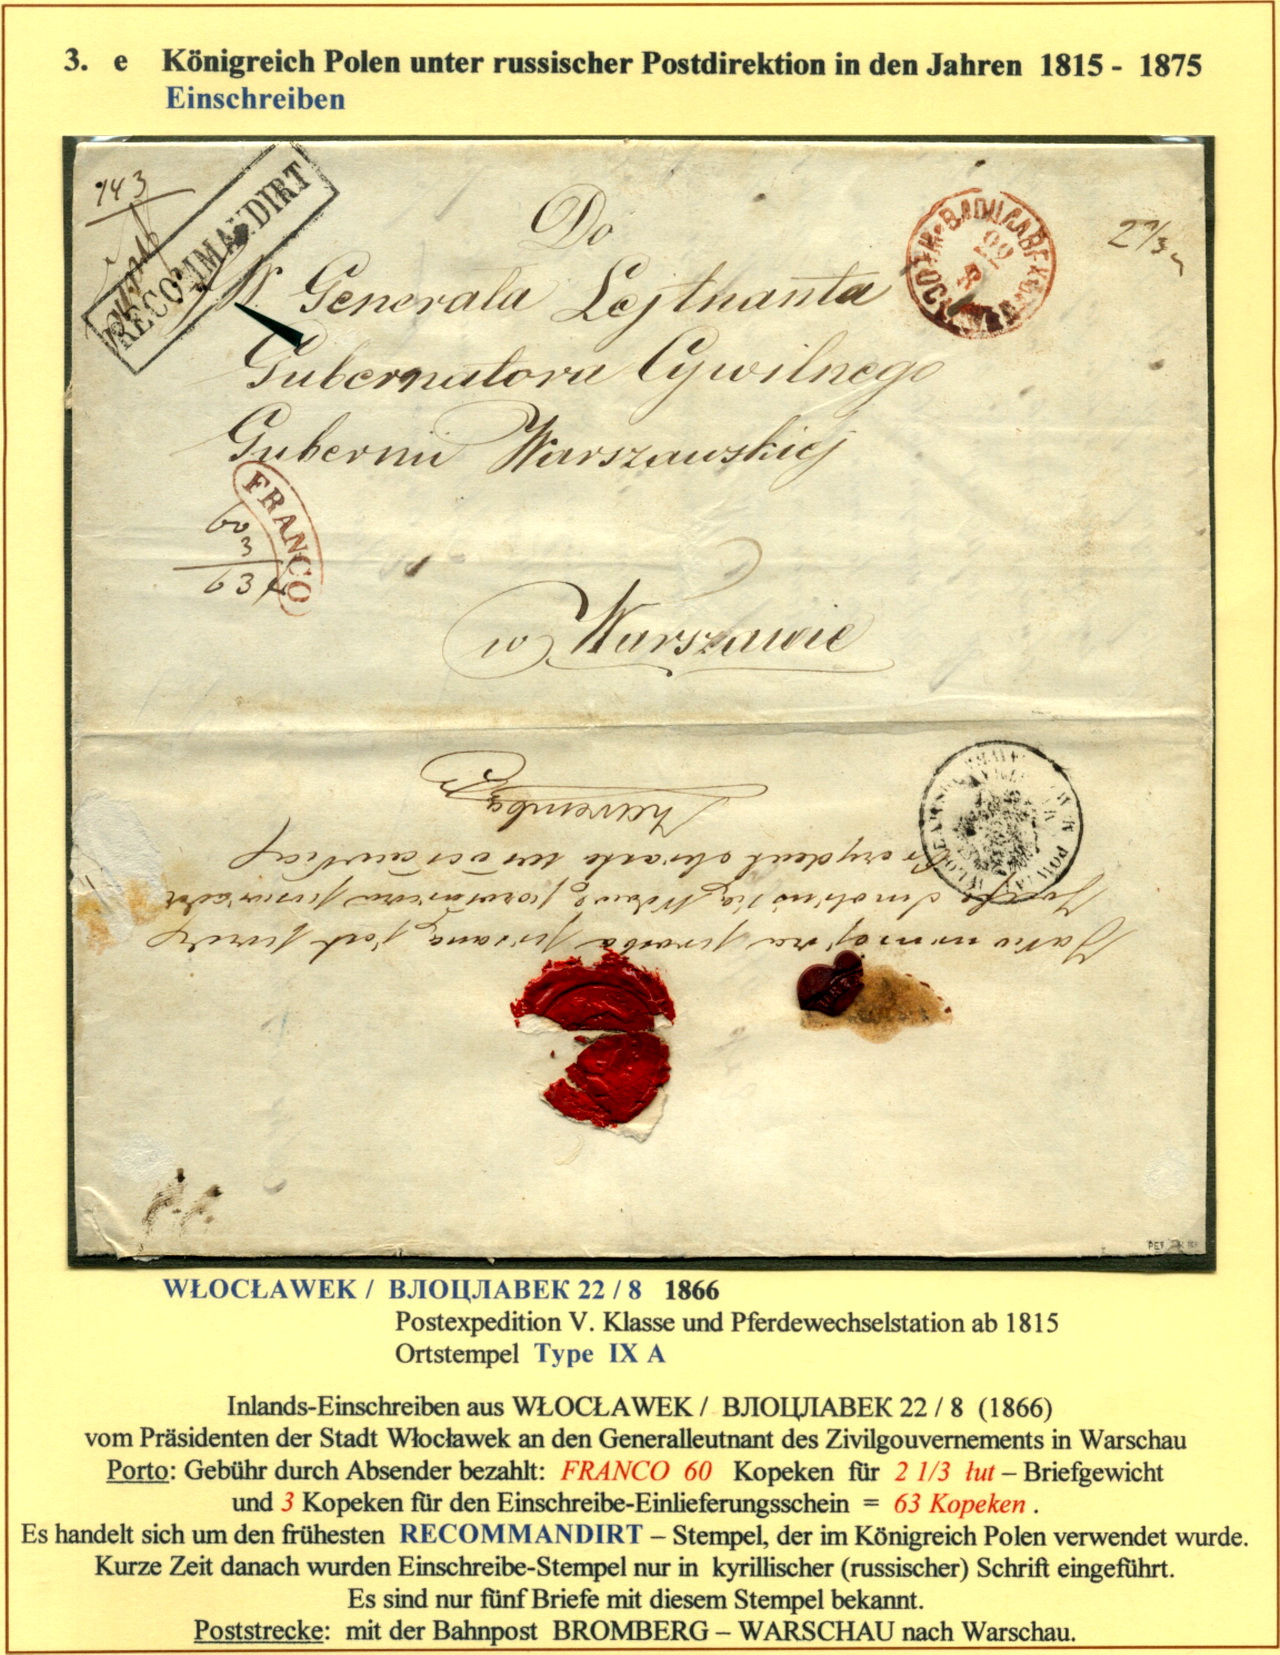 3. e Königreich Polen unter russischer Postdirektion in den Jahren 1815 - 1875
Einschreiben
143
RECOMMANDIRT
Do
Generała Lejtnanta
Gubernatora Cywilnego
Gubernii Warszawskiej
w Warszawie
ВЛОЦЛАВЕКЪ
22
8
2 1/3
FRANCO
60
3
63
Zaremba
WŁOCŁAWEK / ВЛОЦЛАВЕК 22 / 8 1866
Postexpedition V. Klasse und Pferdewechselstation ab 1815
Ortstempel Type IX A
Inlands-Einschreiben aus WŁOCŁAWEK / ВЛОЦЛАВЕК 22 / 8 (1866)
vom Präsidenten der Stadt Włocławek an den Generalleutnant des Zivilgouvernements in Warschau
Porto: Gebühr durch Absender bezahlt: FRANCO 60 Kopeken für 2 1/3 łut – Briefgewicht
und 3 Kopeken für den Einschreibe-Einlieferungsschein = 63 Kopeken .
Es handelt sich um den frühesten RECOMMANDIRT – Stempel, der im Königreich Polen verwendet wurde.
Kurze Zeit danach wurden Einschreibe-Stempel nur in kyrillischer (russischer) Schrift eingeführt.
Es sind nur fünf Briefe mit diesem Stempel bekannt.
Poststrecke: mit der Bahnpost BROMBERG – WARSCHAU nach Warschau.